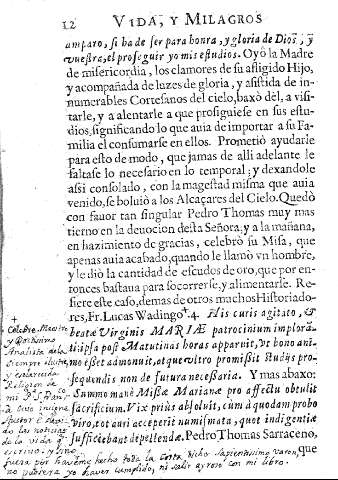 12 VIDA, Y MILAGROS
amparo, si ha de ser para honra, y gloria de Dios, y
vuestra, el proseguir yo mis estudios. Oyò la Madre
de misericordia, los clamores de su afligido Hijo,
y acompañada de luzes de gloria, y asistida de in-
numerables Cortesanos del cielo, baxò dèl, a visi-
tarle, y a alentarle a que prosiguiese en sus estu-
dios, significando lo que auia de importar a su Fa-
milia el consumarse en ellos. Prometiò ayudarle
para esto de modo, que jamas de alli adelante le
faltase lo necesario en lo temporal; y dexandole
assi consolado, con la magestad misma que auia
venido, se boluiò a los Alcaçares del Cielo. Quedò
con fauor tan singular Pedro Thomas muy mas
tierno en la deuocion desta Señora, y a la mañana,
en hazimiento de gracias, celebrò su Misa, que
apenas auia acabado, quando le llamò vn hombre,
y le diò la cantidad de escudos de oro, que por en-
tonces bastaua para socorrerle, y alimentarle. Re-
fiere este caso, demas de otros muchos Historiado-
res, Fr. Lucas Wadingo+4. His curis agitato, &
beatæ Virginis MARIÆ patrocinium implorã-
ti: ipsa post Matutinas horas apparuit, vt bono ani-
mo esset admonuit, atque vltro promissit studijs pro-
sequendis non de futura necessaria. Y mas abaxo:
Summo manè Missæ Marianæ pro affectu obtulit
sacrificium. Vix priùs absoluit, cùm à quodam probo
viro, tot auri acceperit numismata, quot indigentiæ
sufficiebant depellendæ. Pedro Thomas Sarraceno,
que
+
Celebre Maestro
y Doctissimo
Analista de la
siempre ilustre,
y esclarecida
Religion de
mi P. S. Franco
à cuio insigne
Autor è
do las noticias
de la vida q
escrivo, y sino
fuera por haverme hecho toda la costa dicho sapientissimo varon,
no pudiera yo haver cumplido, ni salir ayroso con mi libro.